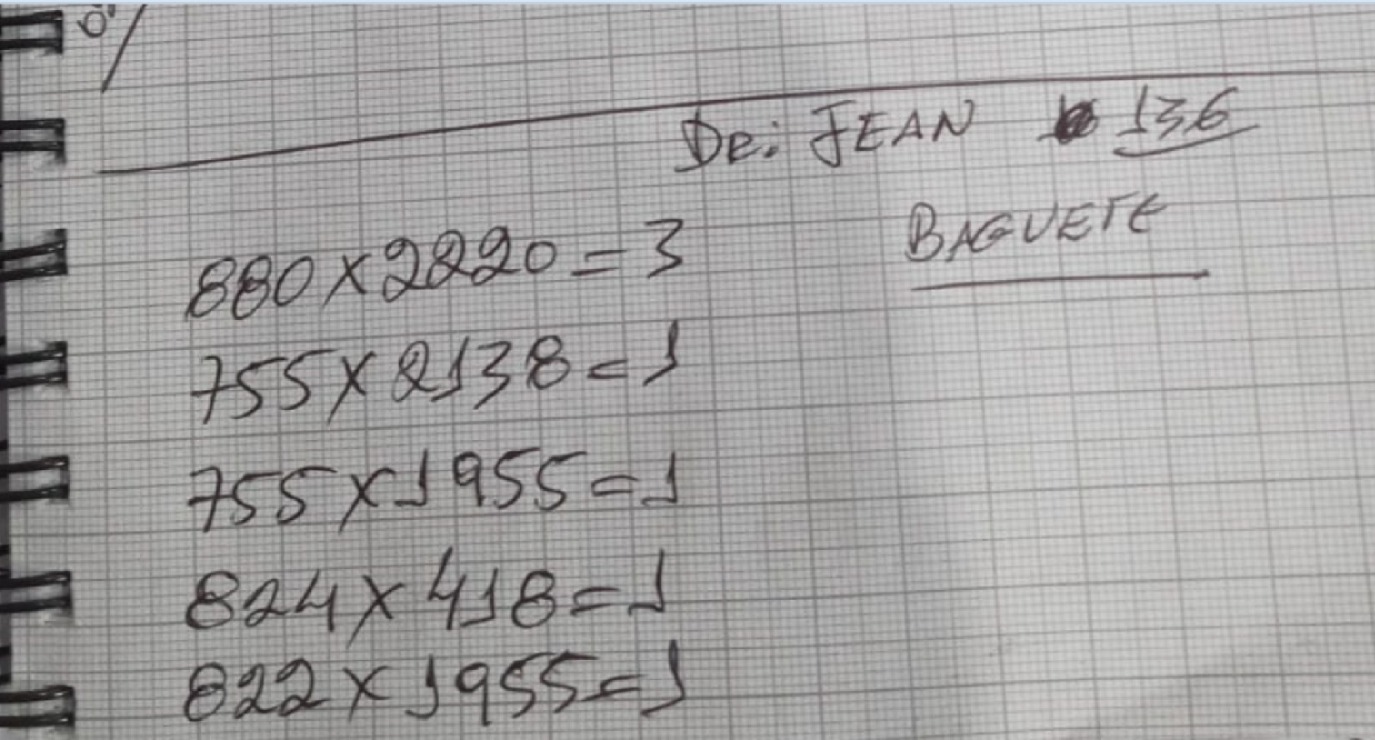 De: JEAN 136
BAGUETE
880x2220=3
755x2138=1
755x1955=1
824x418=1
822x1955=1